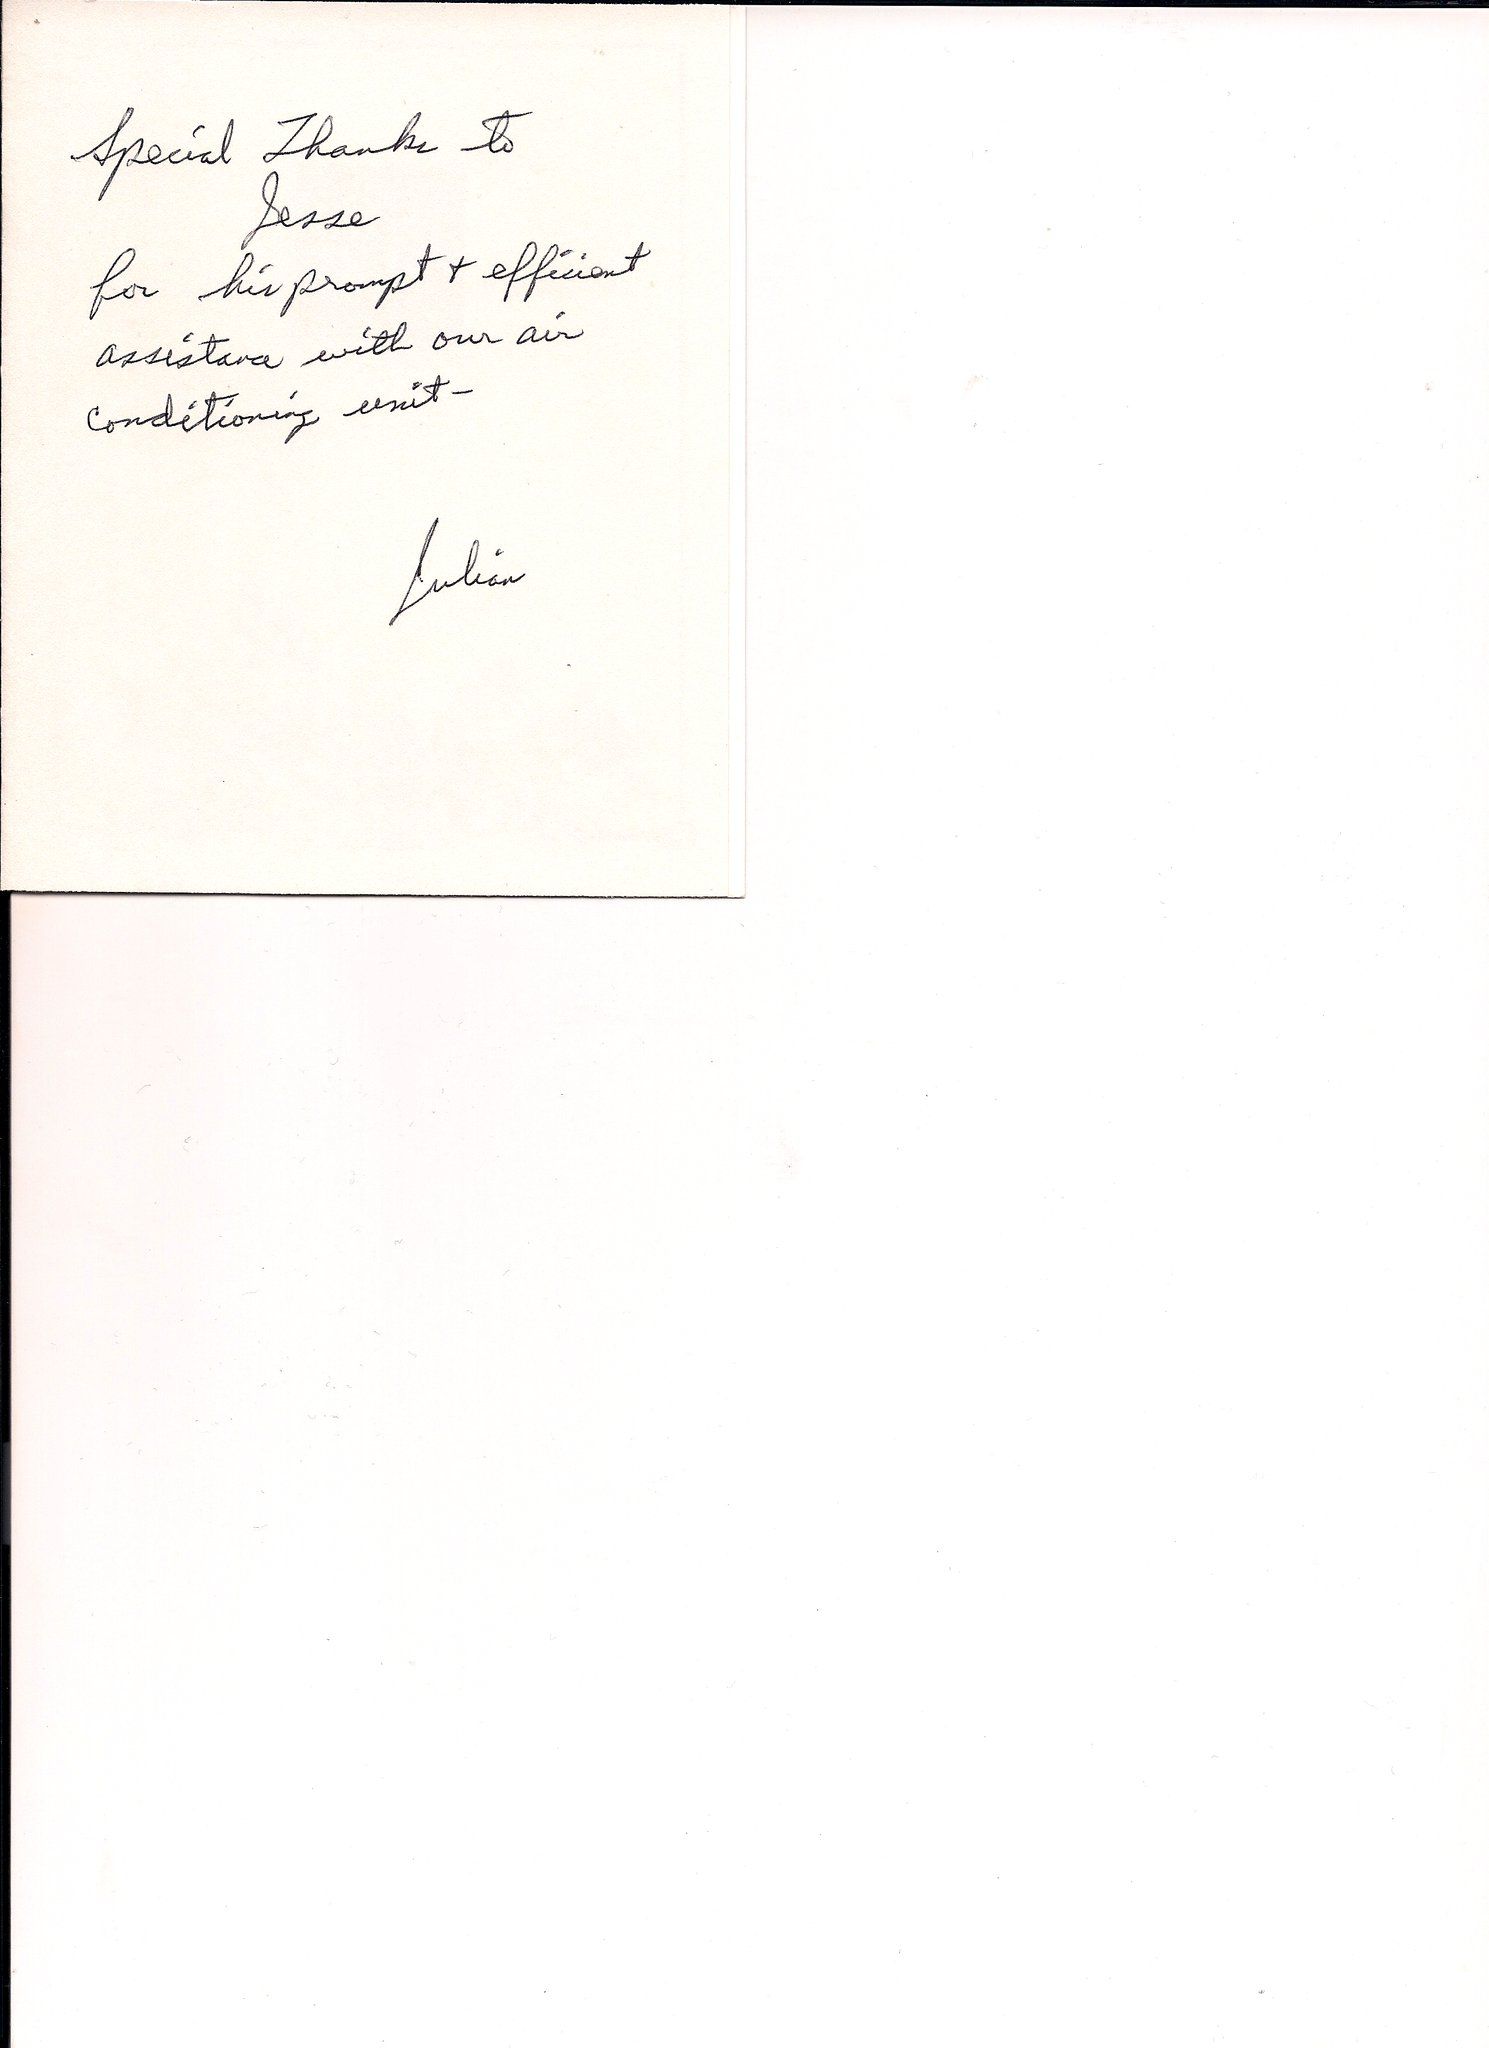 Special Thanks to
Jesse
for his prompt + efficient
assistance with our air
conditioning unit-
Julian